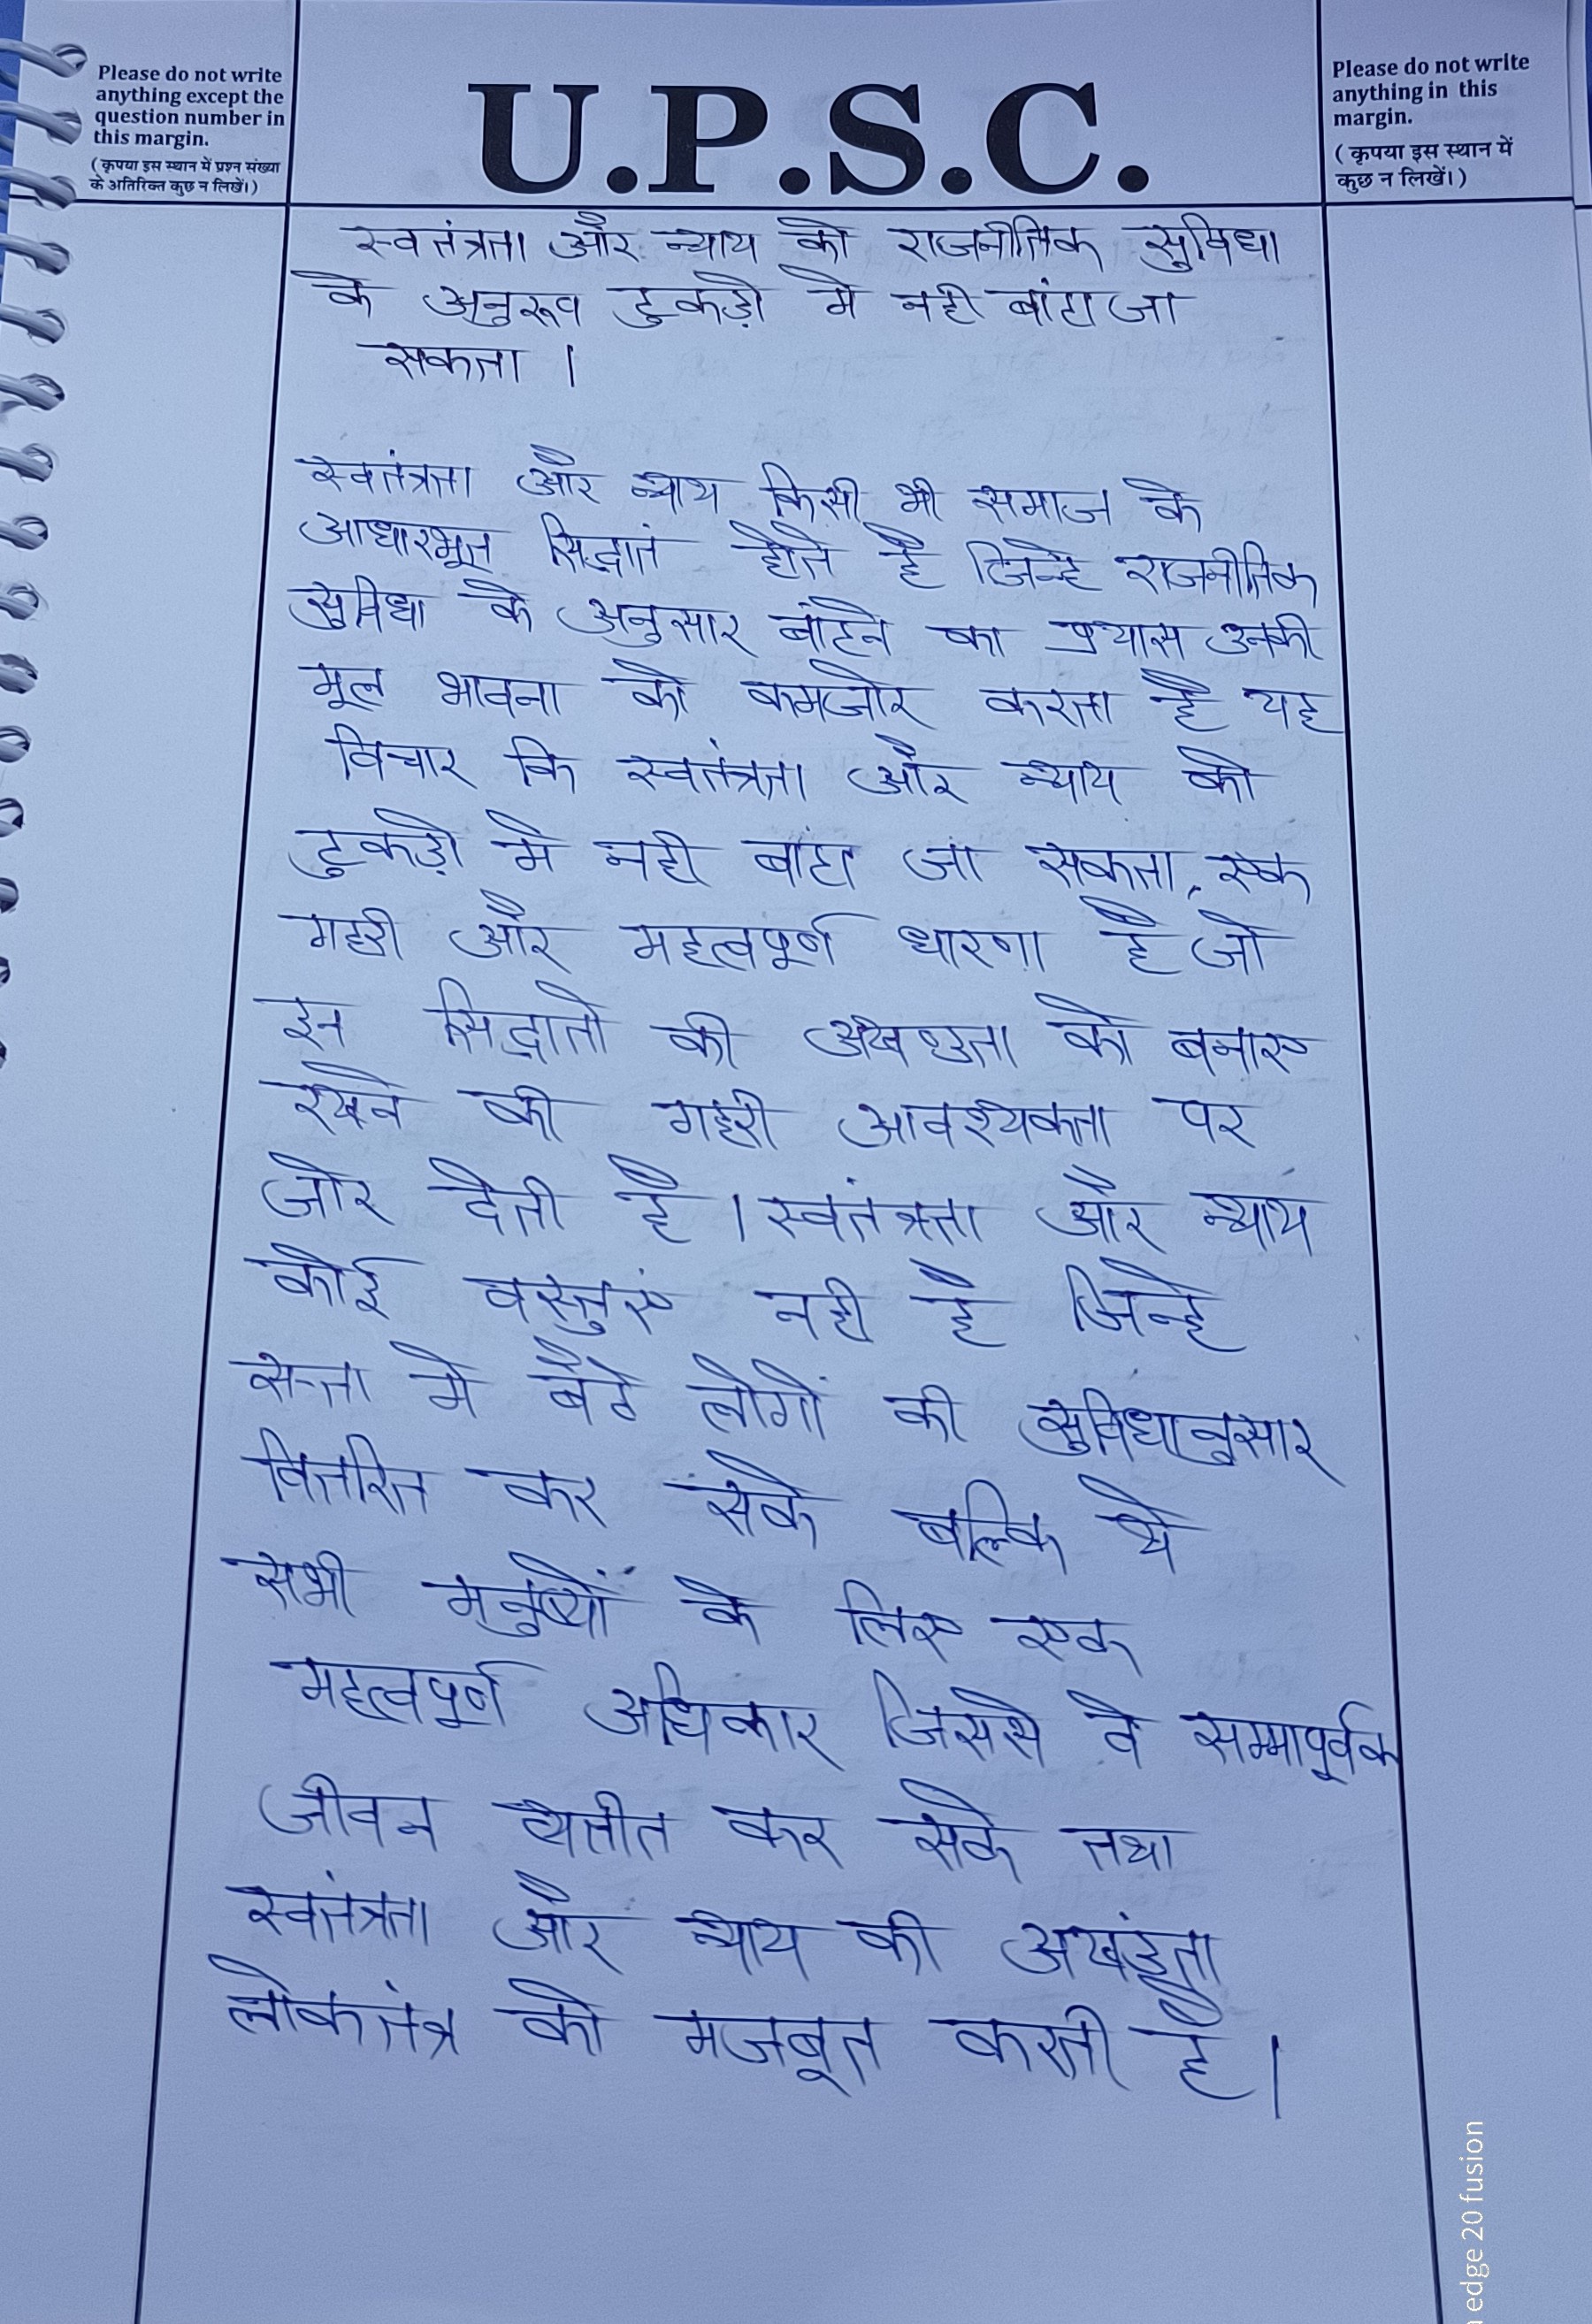 Please do not write
anything except the
question number in
this margin.
(कृपया इस स्थान में प्रश्न संख्या
के अतिरिक्त कुछ न लिखें।)
U.P.S.C.
Please do not write
anything in this
margin.
(कृपया इस स्थान में
कुछ न लिखें।)
स्वतंत्रता और न्याय को राजनीतिक सुविधा
के अनुरूप टुकड़ो मे नही बांटा जा
सकता ।
स्वतंत्रता और न्याय किसी भी समाज के
आधारभूत सिद्धातं होते है जिन्हे राजनीतिक
सुविधा के अनुसार बांटने का प्रयास उनकी
मूल भावना को कमजोर करता है यह
विचार कि स्वतंत्रता और न्याय को
टुकड़ो मे नही बांटा जा सकता, एक
गहरी और महत्वपूर्ण धारणा है जो
इन सिद्धातो की अखण्डता को बनाए
रखने की गहरी आवश्यकता पर
जोर देती है । स्वतंत्रता और न्याय
कोई वस्तुएं नही है जिन्हे
सत्ता मे बैठे लोगों की सुविधानुसार
वितरित कर सके बल्कि ये
सभी मनुष्यों के लिए एक
महत्वपूर्ण अधिकार जिससे वे सम्मापूर्वक
जीवन व्यतीत कर सके तथा
स्वतंत्रता और न्याय की अखंडता
लोकतंत्र को मजबूत करती है ।
edge 20 fusion